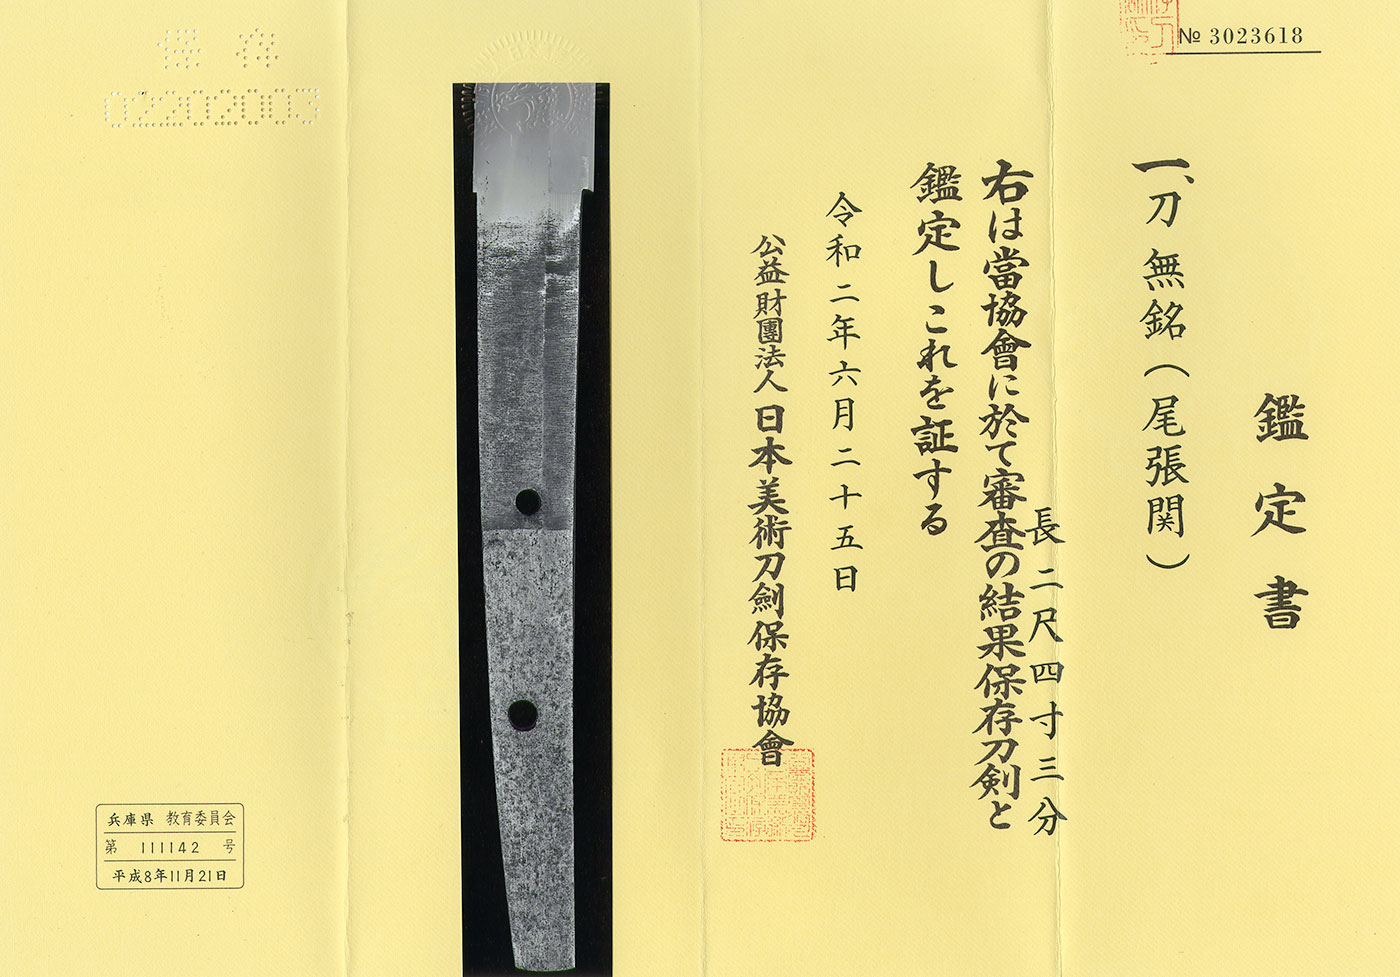 № 3023618
鑑定書
一、刀 無銘（尾張関）
長二尺四寸三分
右は當協會に於て審査の結果保存刀剣と
鑑定しこれを証する
令和二年六月二十五日
公益財團法人 日本美術刀劍保存協會
保存
02202003
兵庫県 教育委員会
第 111142 号
平成8年11月21日